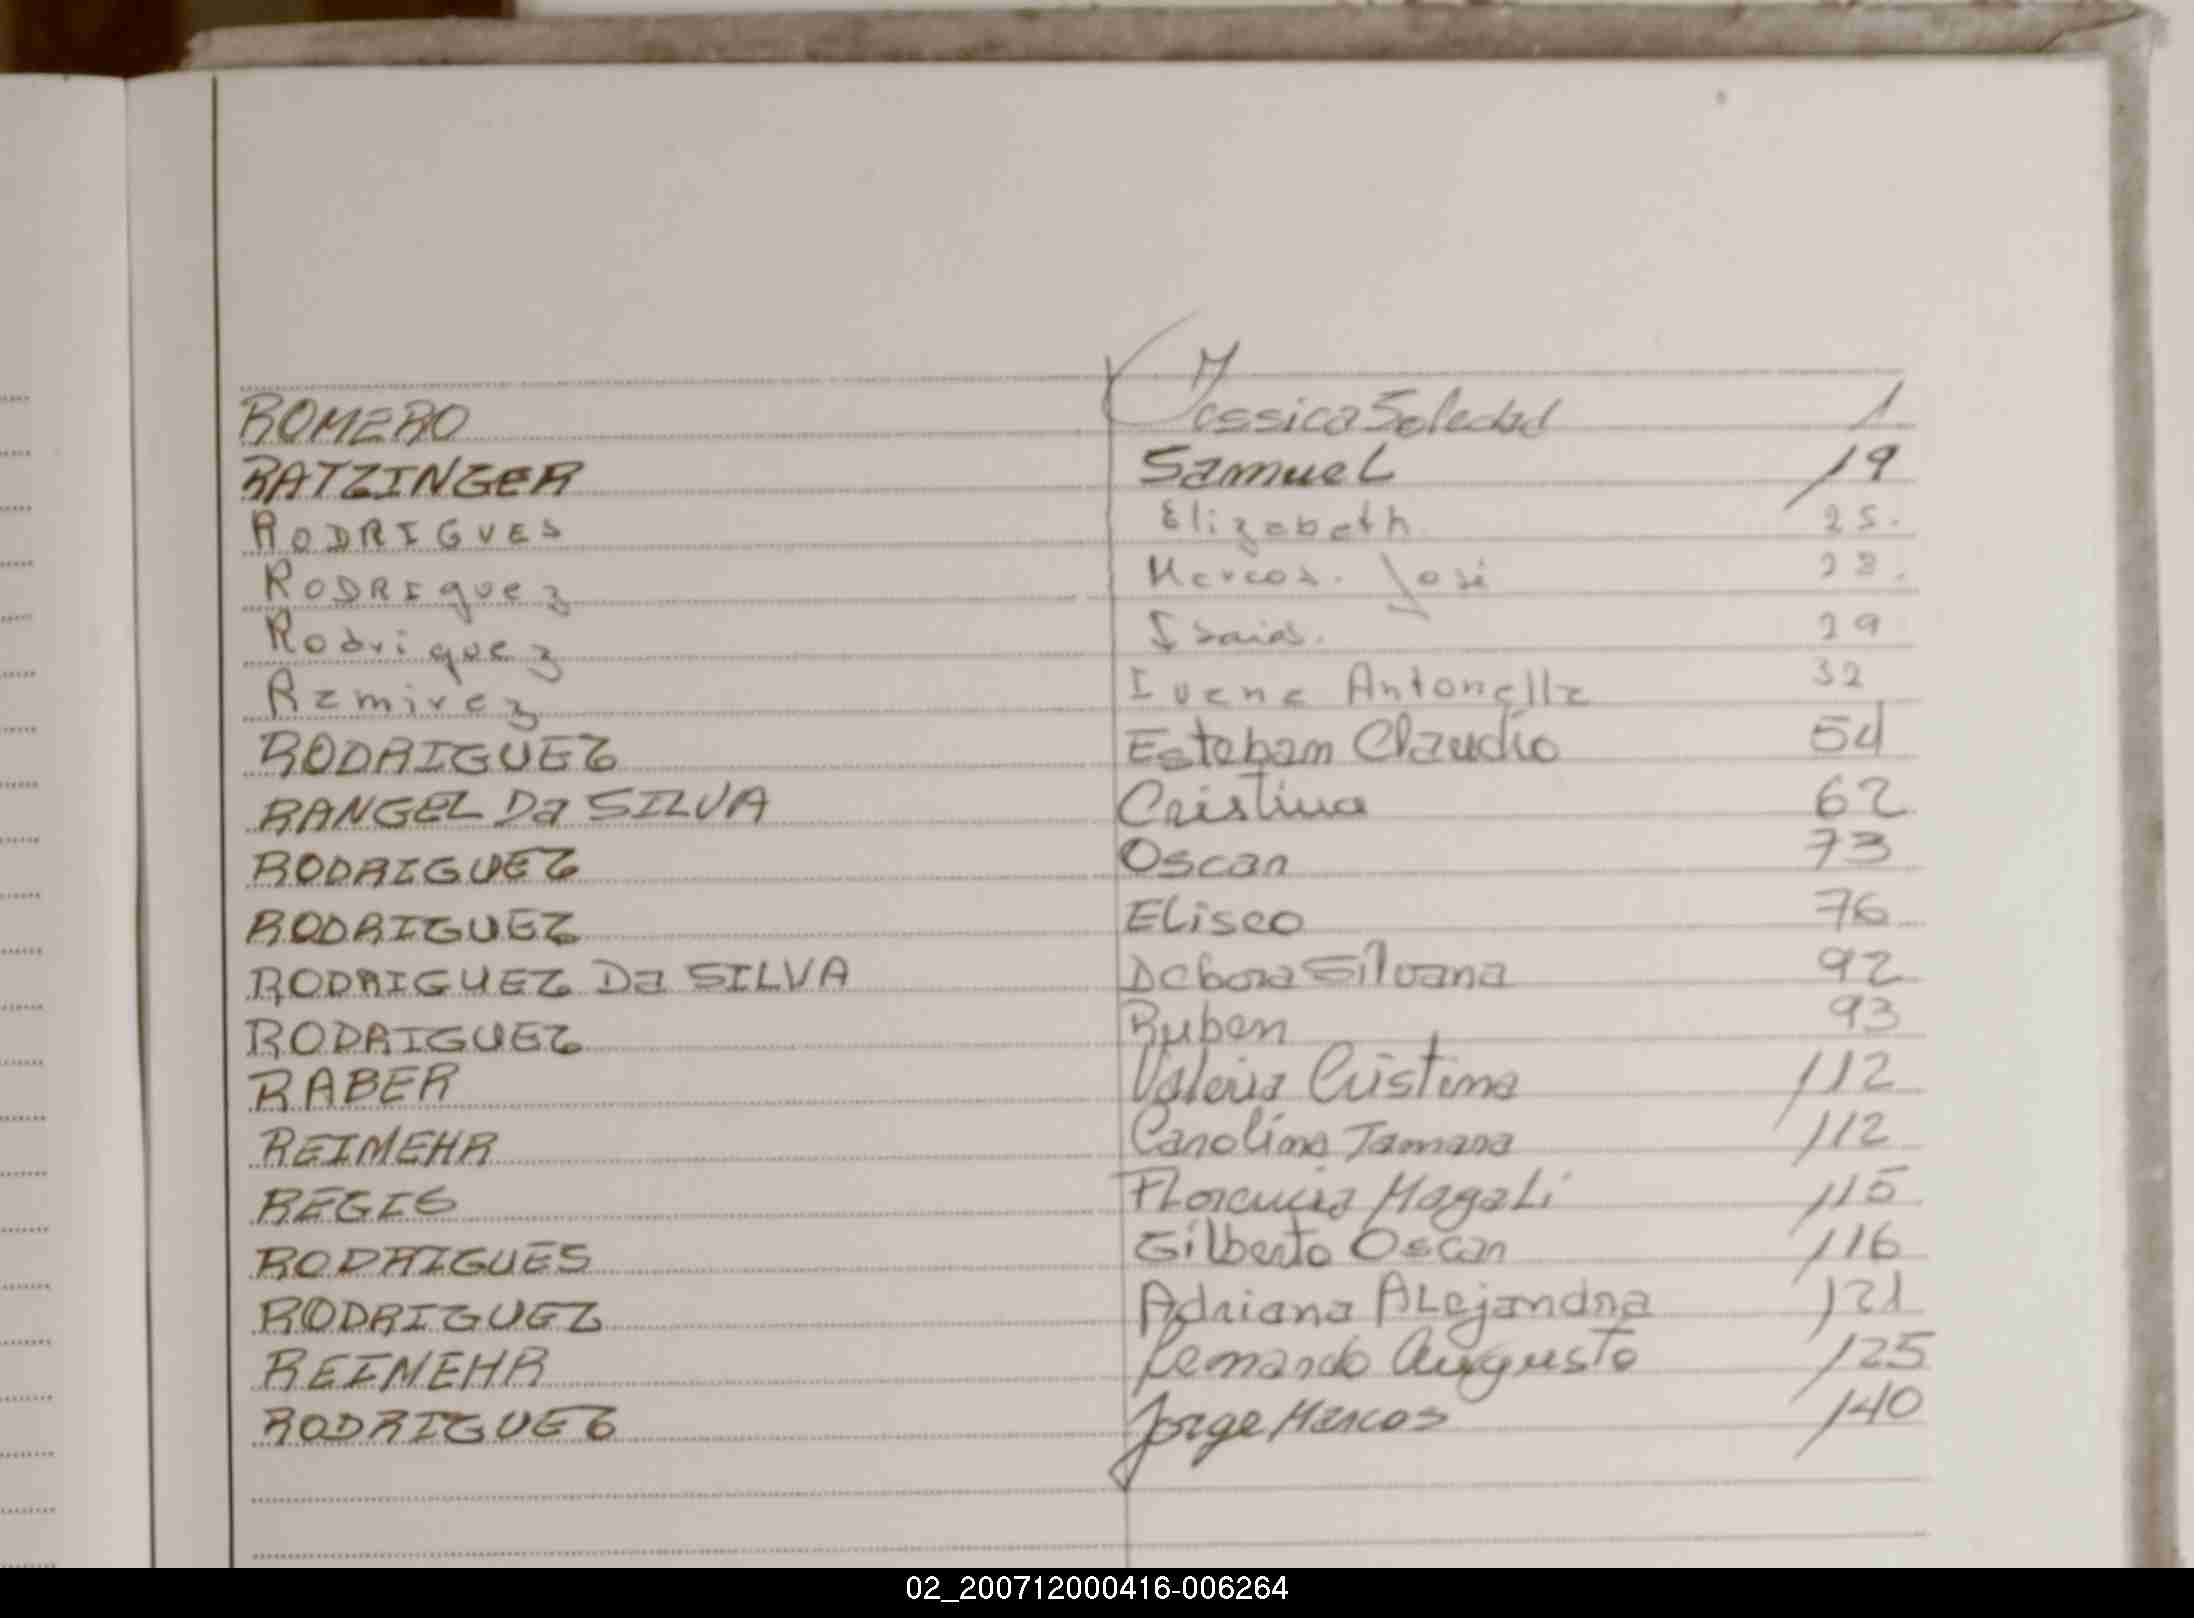 ROMERO Jessica Soledad 1
RATZINGER Samuel 19
RODRIGUES Elizabeth 25.
RODRIguez Marcos. José 28.
Rodriguez Isaias. 29
Ramirez Ivana Antonella 32
RODRIGUEZ Esteban Claudio 54
RANGEL Da SILVA Cristina 62
RODRIGUEZ Oscar 73
RODRIGUEZ Eliseo 76
RODRIGUEZ Da SILVA Debora Silvana 92
RODRIGUEZ Ruben 93
RABER Valeria Cristina 112
REIMEHR Carolina Tamara 112
REGIS Florencia Magali 115
RODRIGUES Gilberto Oscar 116
RODRIGUEZ Adriana Alejandra 121
REIMEHR Fernando Augusto 125
RODRIGUEZ Jorge Marcos 140
02_200712000416-006264